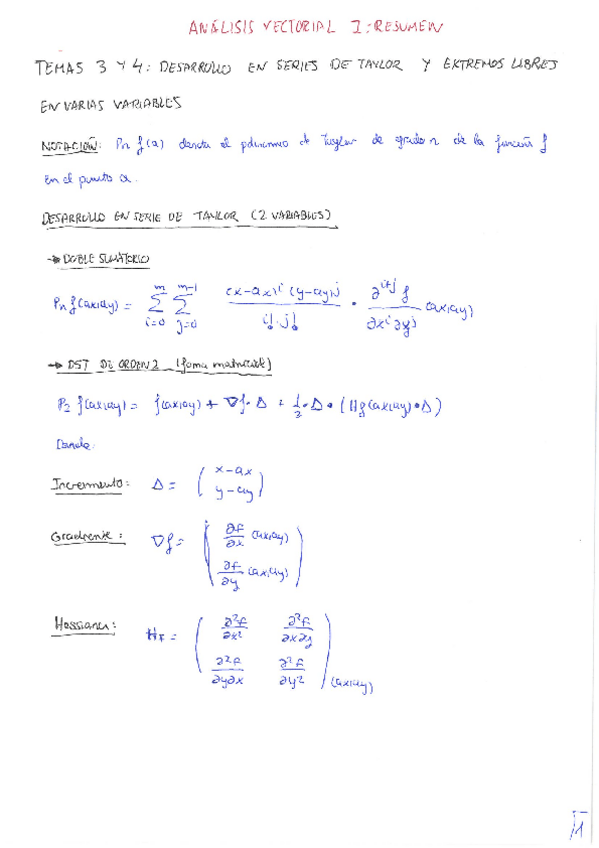 ANÁLISIS VECTORIAL I: RESUMEN
TEMAS 3 Y 4: DESARROLLO EN SERIES DE TAYLOR Y EXTREMOS LIBRES
EN VARIAS VARIABLES
NOTACIÓN: Pn f(a) denota el polinomio de Taylor de grado n de la función f
en el punto a.
DESARROLLO EN SERIE DE TAYLOR (2 VARIABLES)
→ DOBLE SUMATORIO
Pn f(ax,ay) = ∑_{i=0}^{m} ∑_{j=0}^{m-i} (x-ax)^i (y-ay)^j / i!·j! · ∂^{i+j} f / ∂x^i ∂y^j (ax,ay)
→ DST DE ORDEN 2 (forma matricial)
P2 f(ax,ay) = f(ax,ay) + ∇f·Δ + 1/2·Δ·(Hf(ax,ay)·Δ)
Donde:
Incremento: Δ = (x-ax
y-ay)
Gradiente: ∇f = (∂f/∂x (ax,ay)
∂f/∂y (ax,ay))
Hessiana: HF = (∂²f/∂x² ∂²f/∂x∂y
∂²f/∂y∂x ∂²f/∂y²) (ax,ay)
1